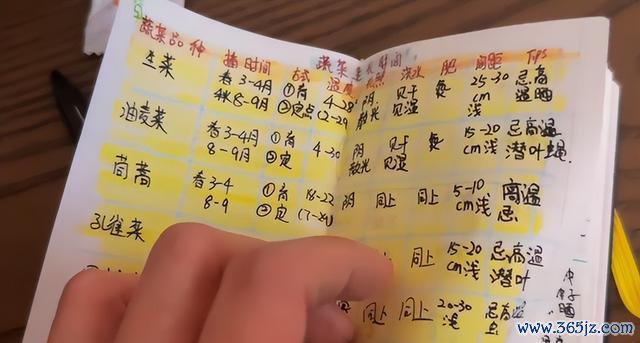 蔬菜品种 播时间 方式 温度 浇水 肥 间距 TPS
生菜 春3-4月 ①育 阴 见干 25-30 忌高
秋8-9月 ②定点 散光 见湿 cm 温晒
浅
油麦菜 春3-4月 ①育 4-30 阴 见干 15-20 忌高温
8-9月 ②定 散光 见湿 cm浅 潜叶蝇
茼蒿 春3-4 ①育 18-22 阴 同上 同上 5-10 高温
8-9 ②定 cm浅 忌
孔雀菜 同上 15-20 忌高温
cm浅 潜叶
同上 同上 20-30 忌高温
浅
www.365jz.com